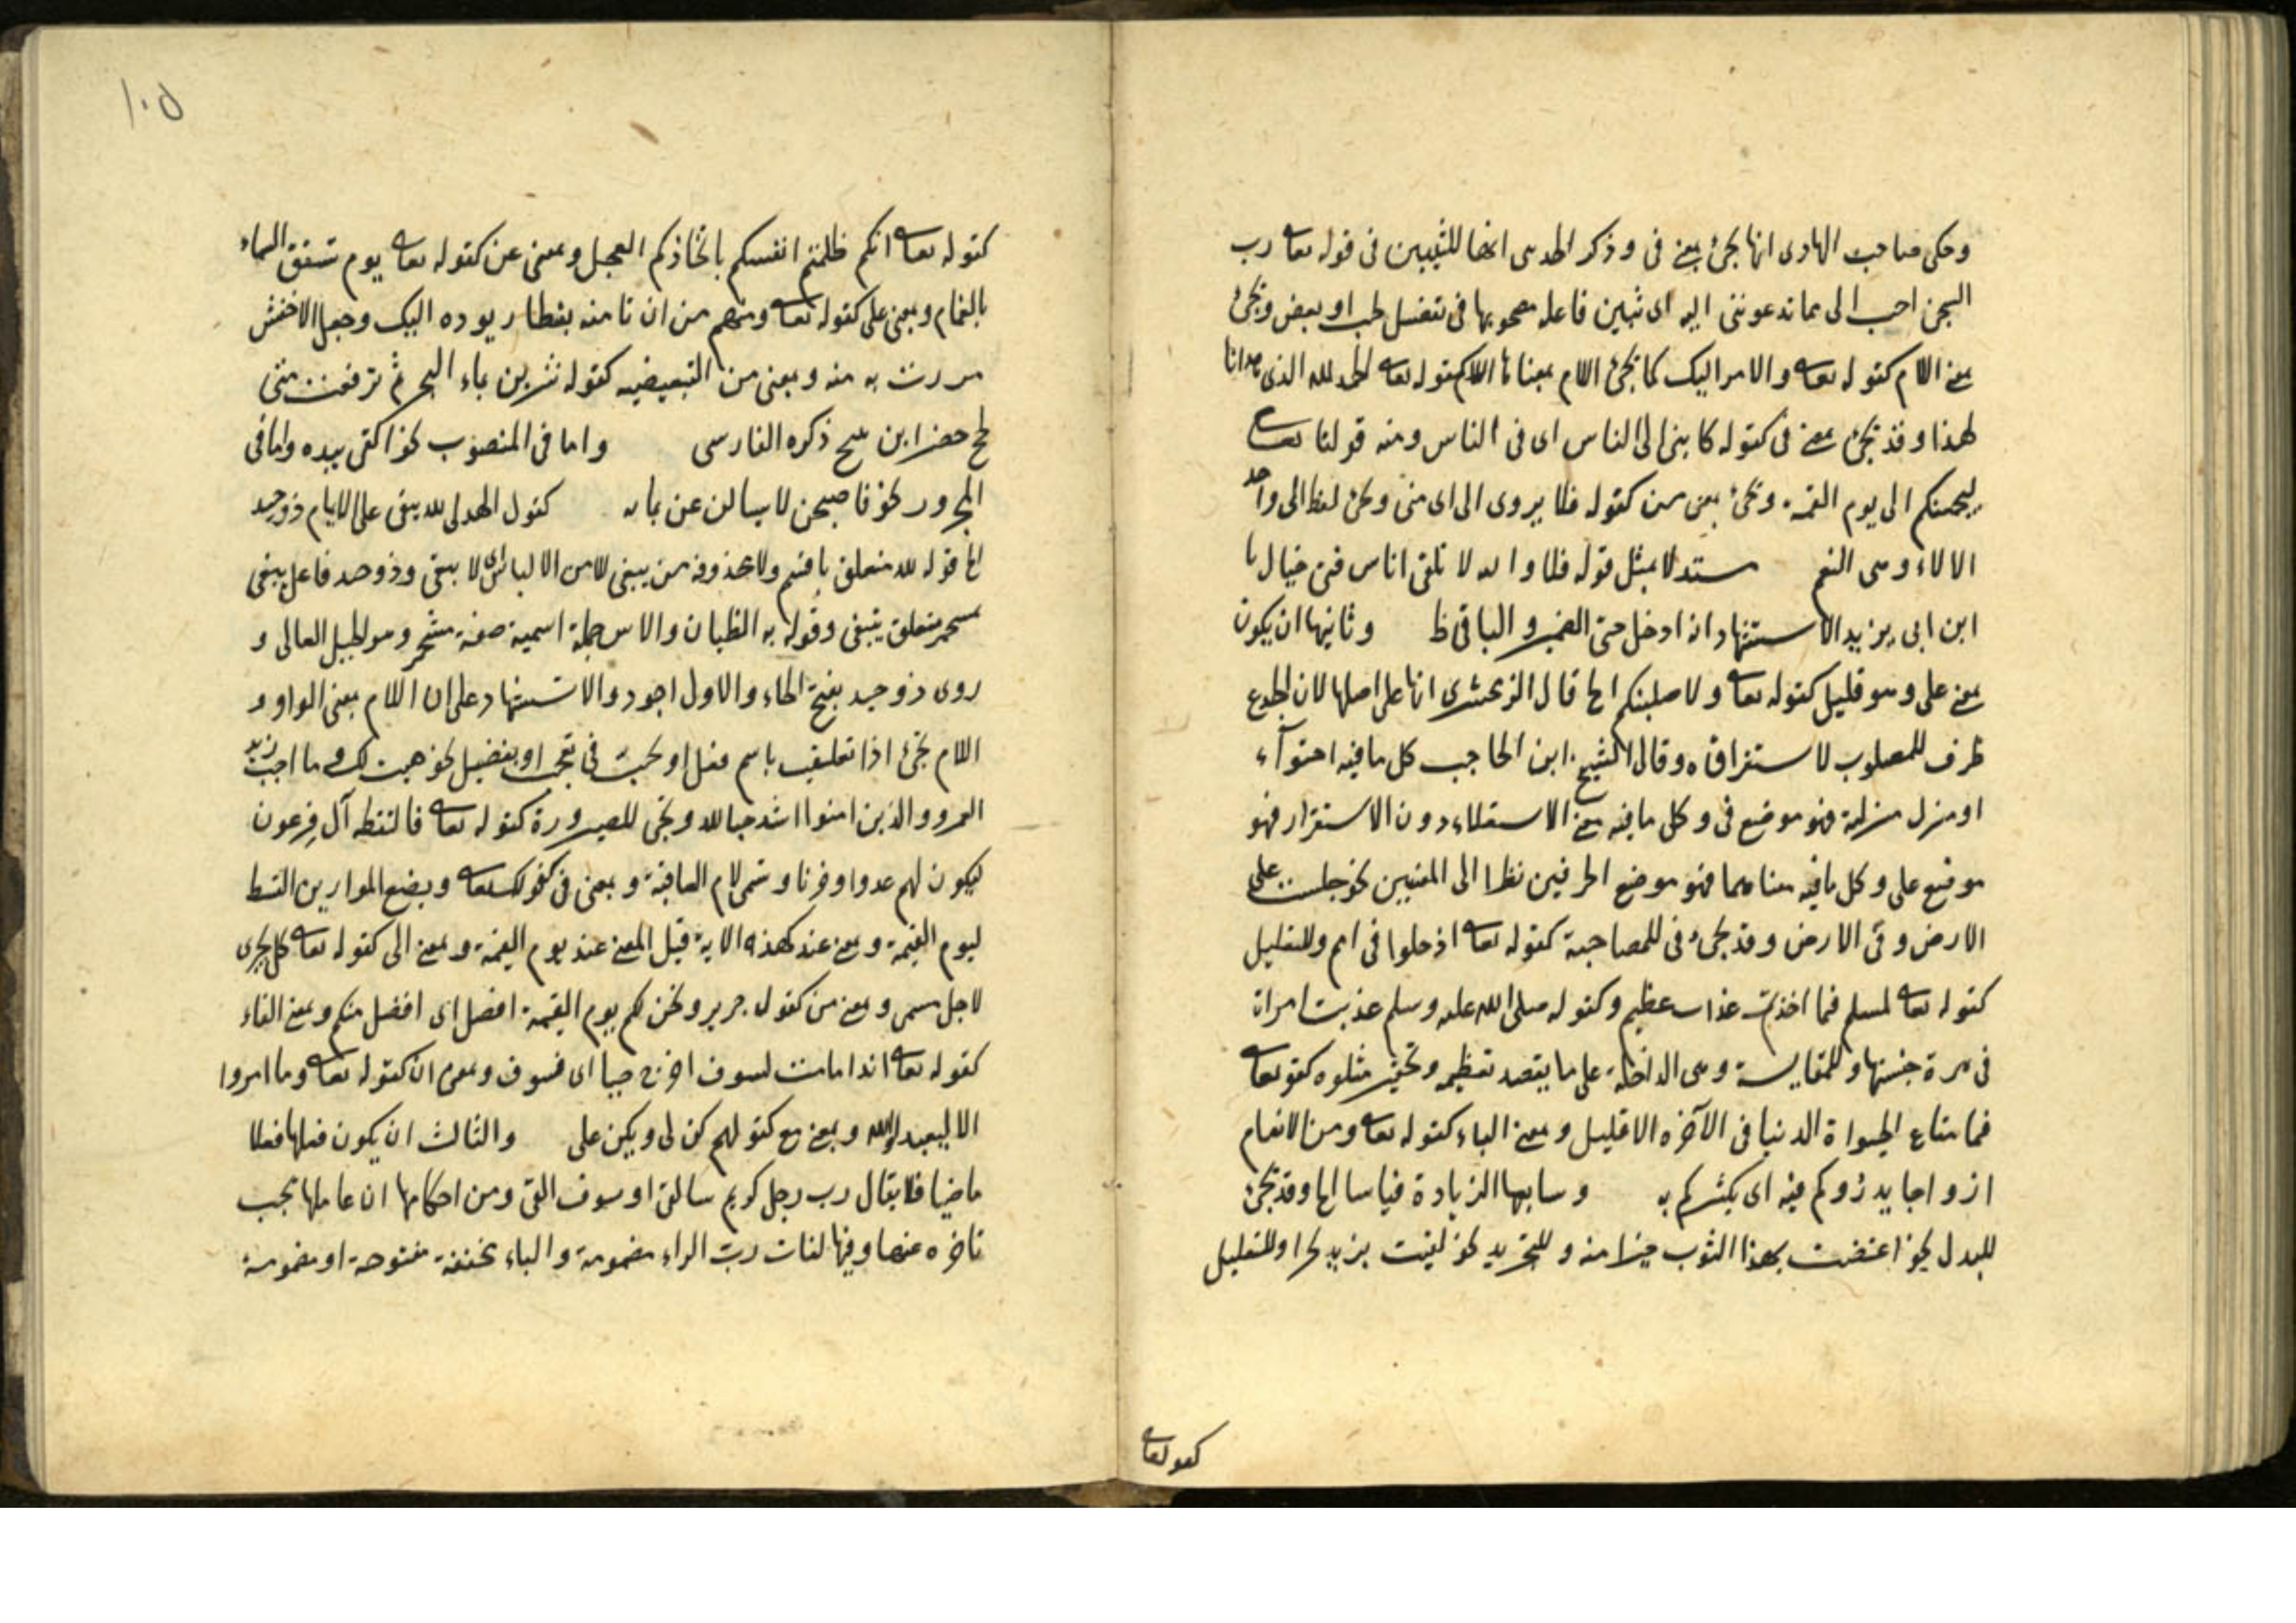 وحكى صاحب الهادى انها تجئ بمعنى فى وذكر المهدى ايضا للتبيين فى قوله تعا رب
السجن احب الى مما تدعوننى اليه اى تبيين فاعليه مصحوبها فى تفضيل حب او بغض وتجئ
بمعنى اللام كقوله تعا والامر اليك كما تجئ اللام بمعناها كقوله تعا الحمد لله الذى هدانا
لهذا وقد تجئ بمعنى فى كقوله كاننى الى الناس اى فى الناس ومنه قولنا تعا
ليجمعنكم الى يوم القيمة وتجئ بمعنى من كقوله فلا يروى الى اى منى وتجئ لفظ الى واحد
الالاء وهى النعم مستدلا بمثل قوله فلا والله لا تلقى اناس فتى
ابن ابى يزيد الاستشهاد انه ادخل حتى الضمير والباقى ظ وثانيها ان يكون
بمعنى على وهو قليل كقوله تعا ولاصلبنكم الخ قال الزمخشرى انها على اصلها لان الجذوع
ظرف للمصلوب لاستقراقه وقال الشيخ ابن الحاجب كل ما فيه احتوآء
او منزل منزلته فهو موضع فى وكل ما فيه معنى الاستعلاء دون الاستقرار فهو
موضع على وكل ما فيه معناهما فهو موضع الحرفين نظرا الى المعنيين نحو جلست على
الارض وفى الارض وقد تجئ فى للمصاحبة كقوله تعا ادخلوا فى امم وللتعليل
كقوله تعا لمسكم فما اخذتم عذاب عظيم وكقوله صلى الله عليه وسلم عذبت امراة
فى هرة حبستها وللمقايسة وهى الداخلة على ما يقصد تعظيمه وتحقير متلوه كقوله تعا
فما متاع الحيواة الدنيا فى الآخرة الا قليل وبمعنى الباء كقوله تعا ومن الانعام
ازواجا يذرؤكم فيه اى يكثركم به وسابعها الزيادة قياسا الخ وقد تجئ
للبدل نحو اعتضت بهذا الثوب خيرا منه وللتجريد نحو لقيت بزيد بحرا وللتعليل
كقوله تعا
١٠٥
كقوله تعا انكم ظلمتم انفسكم باتخاذكم العجل وبمعنى عن كقوله تعا يوم تشقق السماء
بالغمام وبمعنى على كقوله تعا ومنهم من ان تامنه بقنطار يوده اليك وجعل الاخفش
مررت به منه وبمعنى من التبعيضيه كقوله شربن بماء البحر ثم ترفعت متى
لجج خضر ذكره الفارسى واما فى المنصوب نحو اكتفى بيده واما فى
المجرور نحو فاصبحن لا يسالن عن بما به كقول الهدلى لله يبقى على الايام ذو حيد
الخ قوله لله متعلق باقسم ولا محذوفه من يبقى اى لا يبقى وذو حيد فاعل يبقى
بمشمخر متعلق بيبقى وقوله به الظيان والاس جملة اسمية صفة مشمخر وهو الجبل العالى و
روى ذو حيد بفتح الحاء والاول اجود والاستشهاد على ان اللام بمعنى الواو و
اللام تجئ اذا تعلقت باسم فعل او بحبّ فى تعجب او تفضيل نحو هيت لك وما احب زيد
لعمرو والذين امنوا اشد حبا لله وتجئ للصيرورة كقوله تعا فالتقطه آل فرعون
ليكون لهم عدوا وحزنا وتسمى لام العاقبة وبمعنى فى نحو كقوله تعا ويضع الموازين القسط
ليوم القيمة وبمعنى عند كهذه الاية قيل المعنى عند يوم القيمة وبمعنى الى كقوله تعا كل يجرى
لاجل مسمى وبمعنى من كقول جرير ونحن لكم يوم القيمة افضل اى افضل منكم وبمعنى الفاء
كقوله تعا اذا ما مت لسوف اخرج حيا اى فسوف وبمعنى ان كقوله تعا وما امروا
الا ليعبدوا الله وبمعنى مع كقولهم كن لى ويكن على والثالث ان يكون فعلها فعلا
ماضيا فلا يقال رب رجل كريم سالقى او سوف القى ومن احكامها ان عاملها يجب
تاخره عنها وفيها لغات ربّ الراء مضمومة والباء مخففة مفتوحة او مضمومة